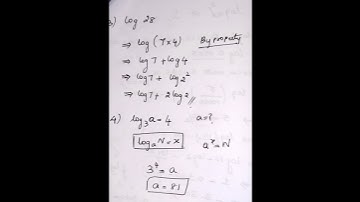 3) log 28
⇒ log (7×4) By property
⇒ log 7 + log 4
⇒ log 7 + log 2²
⇒ log 7 + 2 log 2 //
4) log₃ a = 4 a = ?
logₐ N = x aˣ = N
3⁴ = a
a = 81